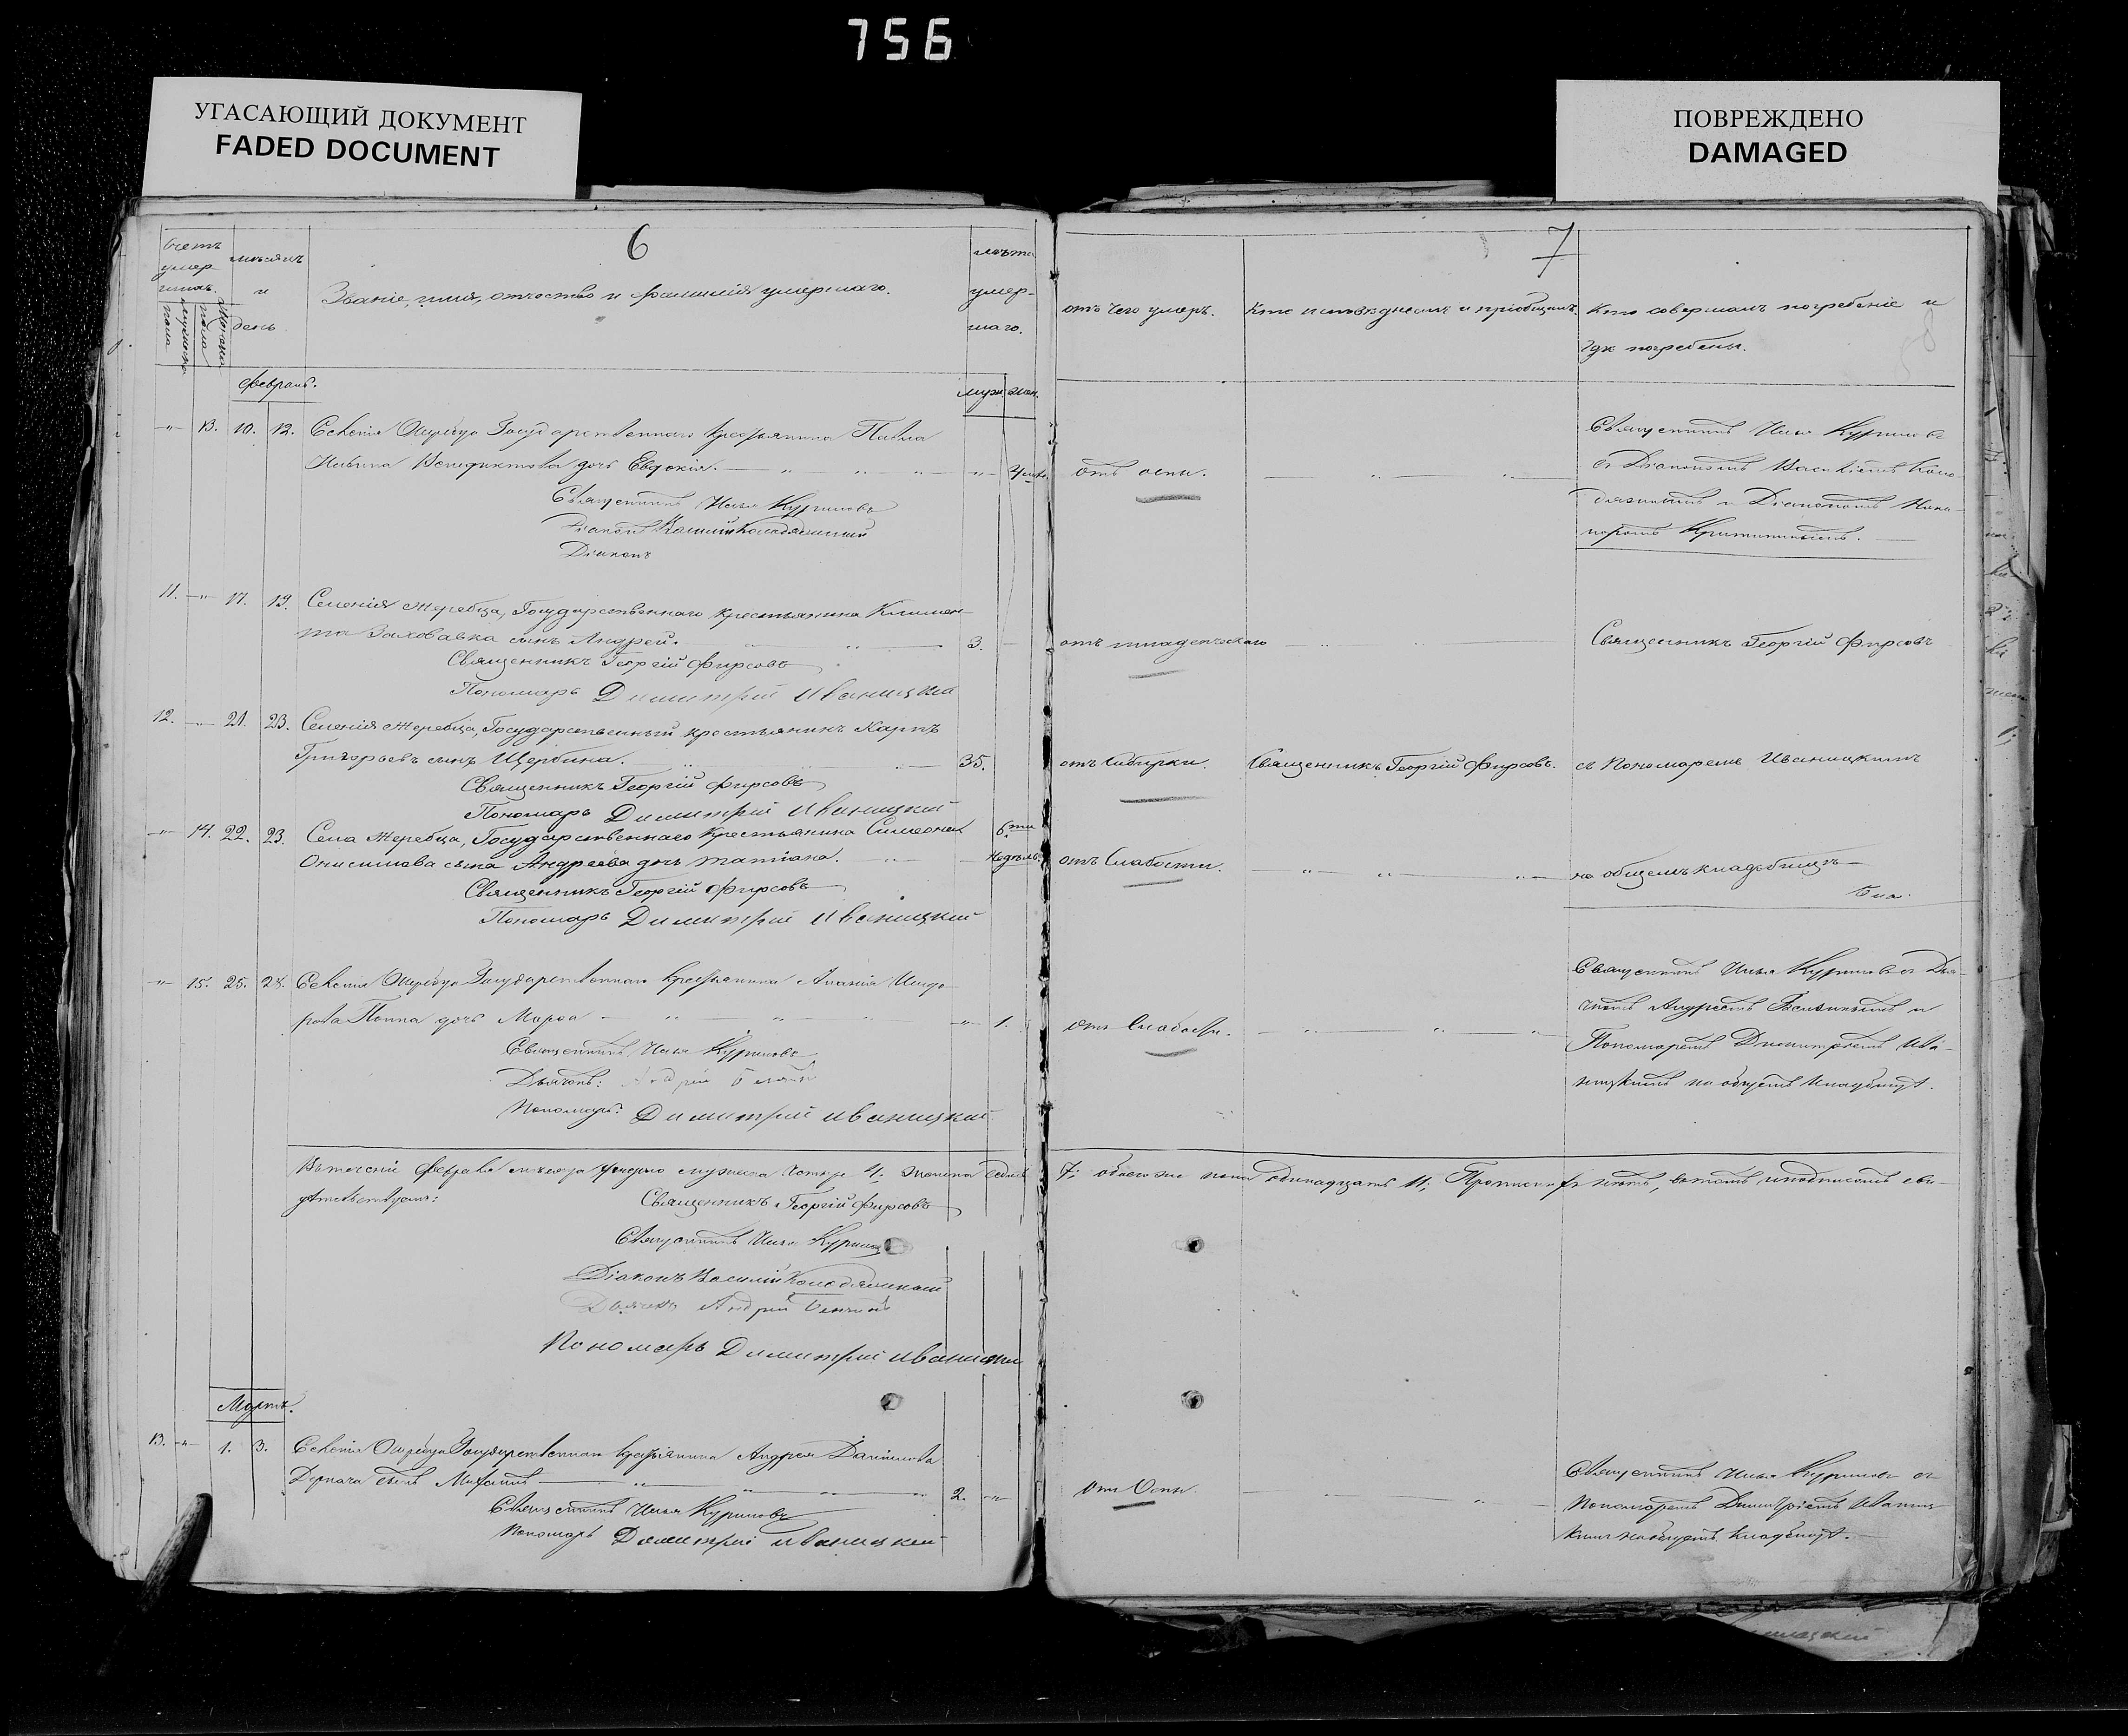 756
УГАСАЮЩИЙ ДОКУМЕНТ
FADED DOCUMENT
ПОВРЕЖДЕНО
DAMAGED
6
7
Счетъ умер-
шихъ.
мужеска
пола
женска
пола
мѣсяцъ
и
день
Званіе, имя, отчество и фамилія умершаго.
лѣта
умер-
шаго.
отъ чего умеръ.
Кто исповѣдывалъ и пріобщалъ.
Кто совершалъ погребеніе и
гдѣ погребены.
февраль.
муж. жен.
13. 10. 12. Селенія Жеребца Государственнаго крестьянина Павла
дочь Евдокія.
отъ оспы.
Священникъ Илья Куриловъ
Діаконъ Василій Колодяжный
Діаконъ
Священникъ Илья Куриловъ
съ Діакономъ Василіемъ Коло-
дяжнымъ и Діакономъ
11. 17. 19. Селенія Жеребца, Государственнаго крестьянина Климен-
та Заховавка сынъ Андрей. 3.
отъ младенческаго
Священникъ Георгій Фирсовъ
Священникъ Георгій Фирсовъ
Пономарь Димитрій Иваницкій
12. 21. 23. Селенія Жеребца, Государственный крестьянинъ Карпъ
Григорьевъ сынъ Щербина. 35.
отъ Сибирки. Священникъ Георгій Фирсовъ. съ Пономаремъ Иваницкимъ
Священникъ Георгій Фирсовъ
Пономарь Димитрій Иваницкій
14. 22. 23. Села Жеребца, Государственнаго крестьянина Симеона
Онисимова сына Андреева дочь Татіана. 6ти недѣль.
отъ Слабости.
на общемъ кладбищѣ
Священникъ Георгій Фирсовъ
Пономарь Димитрій Иваницкій
15. 25. 28. Селенія Жеребца Государственнаго крестьянина Ананія
Попка дочь Марфа 1.
отъ Слабости.
Священникъ Илья Куриловъ
Дьячекъ: Андрей
Пономарь: Димитрій Иваницкій
Священникъ Илья Куриловъ съ Дья-
чкомъ Андреемъ и
Пономаремъ Димитріемъ Ива-
ницкимъ на общемъ кладбищѣ.
Въ теченіи февраля мѣсяца умерло мужеска четыре 4; женска седмь
7; обоего же пола одинадцать 11;
Священникъ Георгій Фирсовъ
Священникъ Илья Куриловъ
Діаконъ Василій Колодяжный
Дьячекъ Андрей
Пономарь Димитрій Иваницкій
Мартъ.
13. 1. 3. Селенія Жеребца Государственнаго крестьянина Андрея Даниилова
Дергача сынъ Михаилъ 2.
отъ Оспы.
Священникъ Илья Куриловъ
Пономарь Димитрій Иваницкій
Священникъ Илья Куриловъ съ
Пономаремъ Димитріемъ Иваниц-
кимъ на общемъ кладбищѣ.